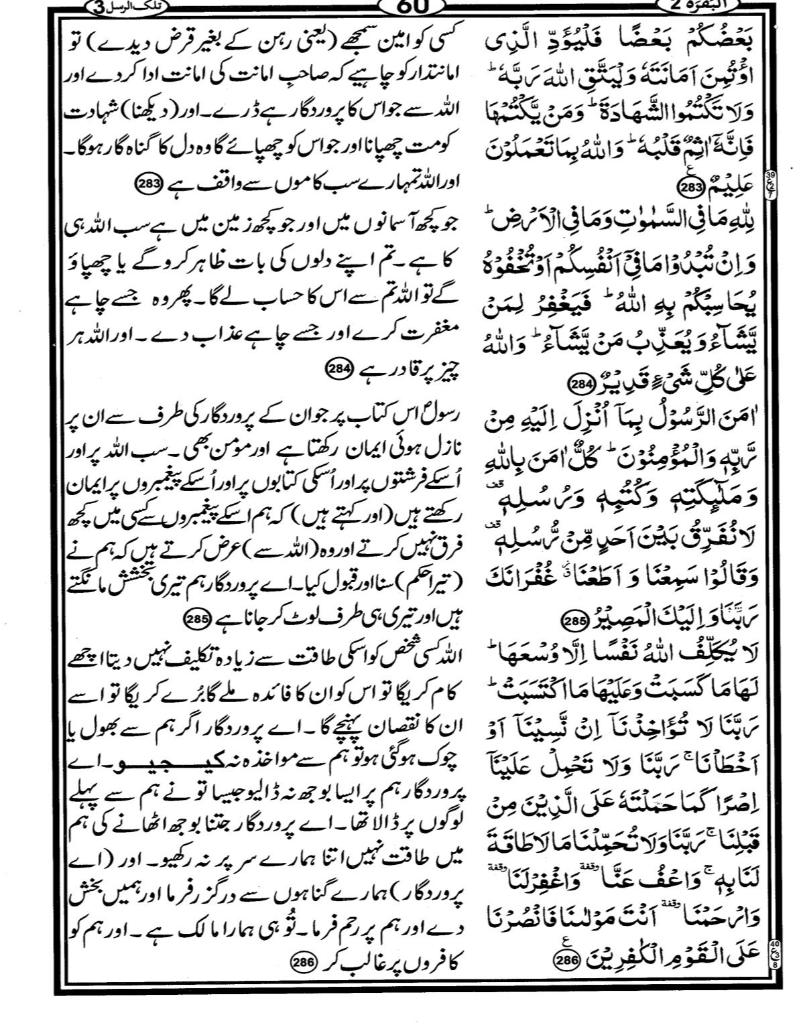 البقرة 2
60
تلک الرسل 3
بَعْضُكُمْ بَعْضًا فَلْيُؤَدِّ الَّذِى
اؤْتُمِنَ اَمَانَتَهٗ وَلْيَتَّقِ اللهَ رَبَّهٗ ؕ
وَلَا تَكْتُمُوا الشَّهَادَةَ ؕ وَمَنْ يَّكْتُمْهَا
فَاِنَّهٗۤ اٰثِمٌ قَلْبُهٗ ؕ وَاللهُ بِمَا تَعْمَلُوْنَ
عَلِيْمٌ 283
لِلّٰهِ مَا فِى السَّمٰوٰتِ وَمَا فِى الْاَرْضِ ؕ
وَاِنْ تُبْدُوْا مَا فِىْۤ اَنْفُسِكُمْ اَوْ تُخْفُوْهُ
يُحَاسِبْكُمْ بِهِ اللهُ ؕ فَيَغْفِرُ لِمَنْ
يَّشَآءُ وَيُعَذِّبُ مَنْ يَّشَآءُ ؕ وَاللهُ
عَلٰى كُلِّ شَىْءٍ قَدِيْرٌ 284
اٰمَنَ الرَّسُوْلُ بِمَاۤ اُنْزِلَ اِلَيْهِ مِنْ
رَّبِّهٖ وَالْمُؤْمِنُوْنَ ؕ كُلٌّ اٰمَنَ بِاللهِ
وَمَلٰٓئِكَتِهٖ وَكُتُبِهٖ وَرُسُلِهٖ قف
لَا نُفَرِّقُ بَيْنَ اَحَدٍ مِّنْ رُّسُلِهٖ قف
وَقَالُوْا سَمِعْنَا وَاَطَعْنَا غُفْرَانَكَ
رَبَّنَا وَاِلَيْكَ الْمَصِيْرُ 285
لَا يُكَلِّفُ اللهُ نَفْسًا اِلَّا وُسْعَهَا ؕ
لَهَا مَا كَسَبَتْ وَعَلَيْهَا مَا اكْتَسَبَتْ ؕ
رَبَّنَا لَا تُؤَاخِذْنَاۤ اِنْ نَّسِيْنَاۤ اَوْ
اَخْطَاْنَا ۚ رَبَّنَا وَلَا تَحْمِلْ عَلَيْنَاۤ
اِصْرًا كَمَا حَمَلْتَهٗ عَلَى الَّذِيْنَ مِنْ
قَبْلِنَا ۚ رَبَّنَا وَلَا تُحَمِّلْنَا مَا لَا طَاقَةَ
لَنَا بِهٖ ۚ وَاعْفُ عَنَّا وقفة وَاغْفِرْ لَنَا وقفة
وَارْحَمْنَا وقفة اَنْتَ مَوْلٰىنَا فَانْصُرْنَا
عَلَى الْقَوْمِ الْكٰفِرِيْنَ 286
کسی کو امین سمجھے (یعنی رہن کے بغیر قرض دیدے) تو
امانتدار کو چاہیے کہ صاحبِ امانت کی امانت ادا کر دے اور
اللہ سے جو اس کا پروردگار ہے ڈرے۔ اور (دیکھنا) شہادت
کو مت چھپانا اور جو اس کو چھپائے گا وہ دل کا گناہ گار ہوگا۔
اور اللہ تمہارے سب کاموں سے واقف ہے 283
جو کچھ آسمانوں میں اور جو کچھ زمین میں ہے سب اللہ ہی
کا ہے۔ تم اپنے دلوں کی بات ظاہر کرو گے یا چھپاؤ
گے تو اللہ تم سے اس کا حساب لے گا۔ پھر وہ جسے چاہے
مغفرت کرے اور جسے چاہے عذاب دے۔ اور اللہ ہر
چیز پر قادر ہے 284
رسولؐ اس کتاب پر جو ان کے پروردگار کی طرف سے ان پر
نازل ہوئی ایمان رکھتا ہے اور مؤمن بھی۔ سب اللہ پر اور
اُسکے فرشتوں پر اور اُسکی کتابوں پر اور اُسکے پیغمبروں پر ایمان
رکھتے ہیں (اور کہتے ہیں) کہ ہم اسکے پیغمبروں سے کسی میں کچھ
فرق نہیں کرتے اور وہ (اللہ سے) عرض کرتے ہیں کہ ہم نے
(تیرا حکم) سنا اور قبول کیا۔ اے پروردگار ہم تیری بخشش مانگتے
ہیں اور تیری ہی طرف لوٹ کر جانا ہے 285
اللہ کسی شخص کو اسکی طاقت سے زیادہ تکلیف نہیں دیتا اچھے
کام کریگا تو اس کو ان کا فائدہ ملے گا بُرے کریگا تو اسے
ان کا نقصان پہنچے گا۔ اے پروردگار اگر ہم سے بھول یا
چوک ہو گئی ہو تو ہم سے مواخذہ نہ کیجیو۔ اے
پروردگار ہم پر ایسا بوجھ نہ ڈالیو جیسا تو نے ہم سے پہلے
لوگوں پر ڈالا تھا۔ اے پروردگار جتنا بوجھ اٹھانے کی ہم
میں طاقت نہیں اتنا ہمارے سر پر نہ رکھیو۔ اور (اے
پروردگار) ہمارے گناہوں سے درگزر فرما اور ہمیں بخش
دے اور ہم پر رحم فرما۔ تُو ہی ہمارا مالک ہے۔ اور ہم کو
کافروں پر غالب کر 286